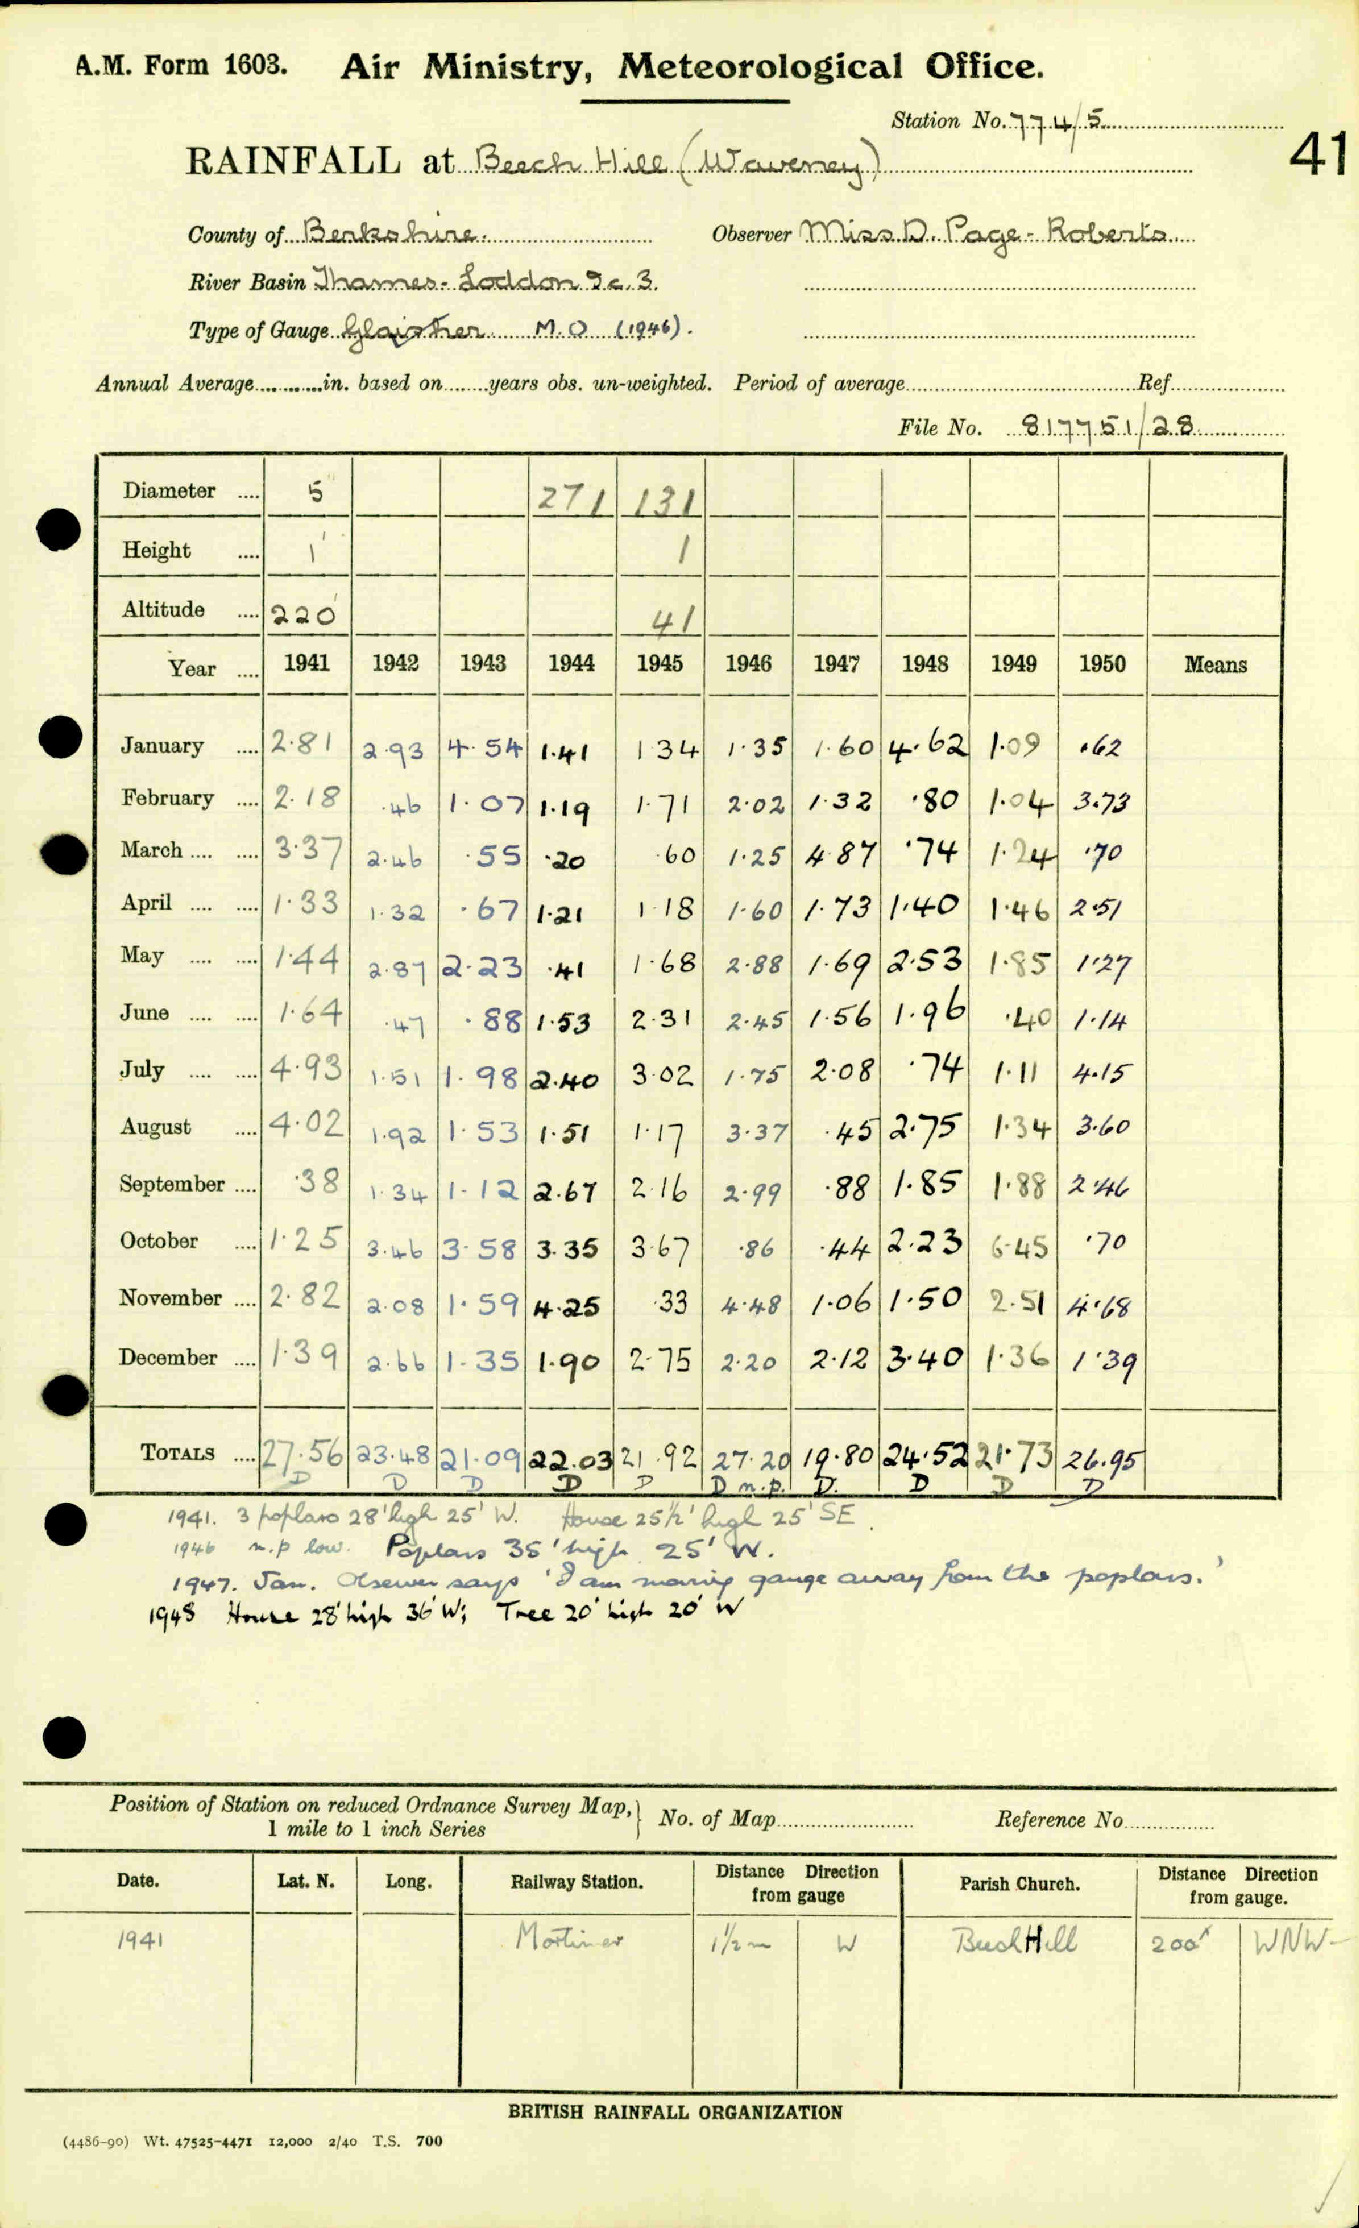 A.M. Form 1603. Air Ministry, Meteorological Office.
Station No. 774/5
41
RAINFALL at Beech Hill (Waveney)
County of Berkshire. Observer Miss D. Page-Roberts
River Basin Thames-Loddon &c. 3.
Type of Gauge Glaisher M.O (1946).
Annual Average............in. based on.......years obs. un-weighted. Period of average Ref.
File No. 817751/28
Diameter .... 5 271 131
Height .... 1' 1
Altitude .... 220' 41
Year .... 1941 1942 1943 1944 1945 1946 1947 1948 1949 1950 Means
January .... 2.81 2.93 4.54 1.41 1 34 1.35 1.60 4.62 1.09 .62
February .... 2.18 .46 1.07 1.19 1.71 2.02 1.32 .80 1.04 3.73
March .... .... 3.37 2.46 .55 .20 .60 1.25 4.87 .74 1.24 .70
April .... .... 1.33 1.32 .67 1.21 1.18 1.60 1.73 1.40 1.46 2.51
May .... .... 1.44 2.87 2.23 .41 1.68 2.88 1.69 2.53 1.85 1.27
June .... .... 1.64 .47 .88 1.53 2.31 2.45 1.56 1.96 .40 1.14
July .... .... 4.93 1.51 1.98 2.40 3.02 1.75 2.08 .74 1.11 4.15
August .... 4.02 1.92 1.53 1.51 1.17 3.37 .45 2.75 1.34 3.60
September .... .38 1.34 1.12 2.67 2.16 2.99 .88 1.85 1.88 2.46
October .... 1.25 3.46 3.58 3.35 3.67 .86 .44 2.23 6.45 .70
November .... 2.82 2.08 1.59 4.25 .33 4.48 1.06 1.50 2.51 4.68
December .... 1.39 2.66 1.35 1.90 2.75 2.20 2.12 3.40 1.36 1.39
TOTALS .... 27.56 23.48 21.09 22.03 21.92 27.20 19.80 24.52 21.73 26.95
D D D D D D n.p. D. D D D
1941. 3 poplars 28' high 25' W. House 25½' high 25' SE.
1946 n.p low. Poplars 35' high 25' W.
1947. Jan. Observer says 'I am moving gauge away from the poplars.'
1948 House 28' high 36' W; Tree 20' high 20' W
Position of Station on reduced Ordnance Survey Map, 1 mile to 1 inch Series } No. of Map Reference No
Date. Lat. N. Long. Railway Station. Distance Direction from gauge Parish Church. Distance Direction from gauge.
1941 Mortimer 1½ m W Beech Hill 200x WNW
BRITISH RAINFALL ORGANIZATION
(4486-90) Wt. 47525-4471 12,000 2/40 T.S. 700